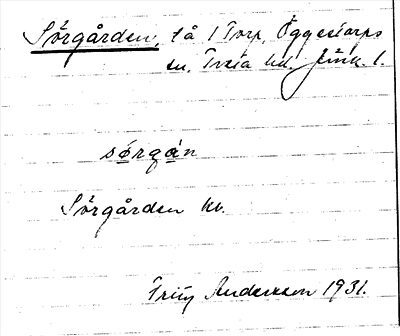 Sörgården, tå 1 Torp, Öggestorps
sn. Tveta hd. Jönk. l.
sörgán
Sörgården kv.
Anderson 1931.